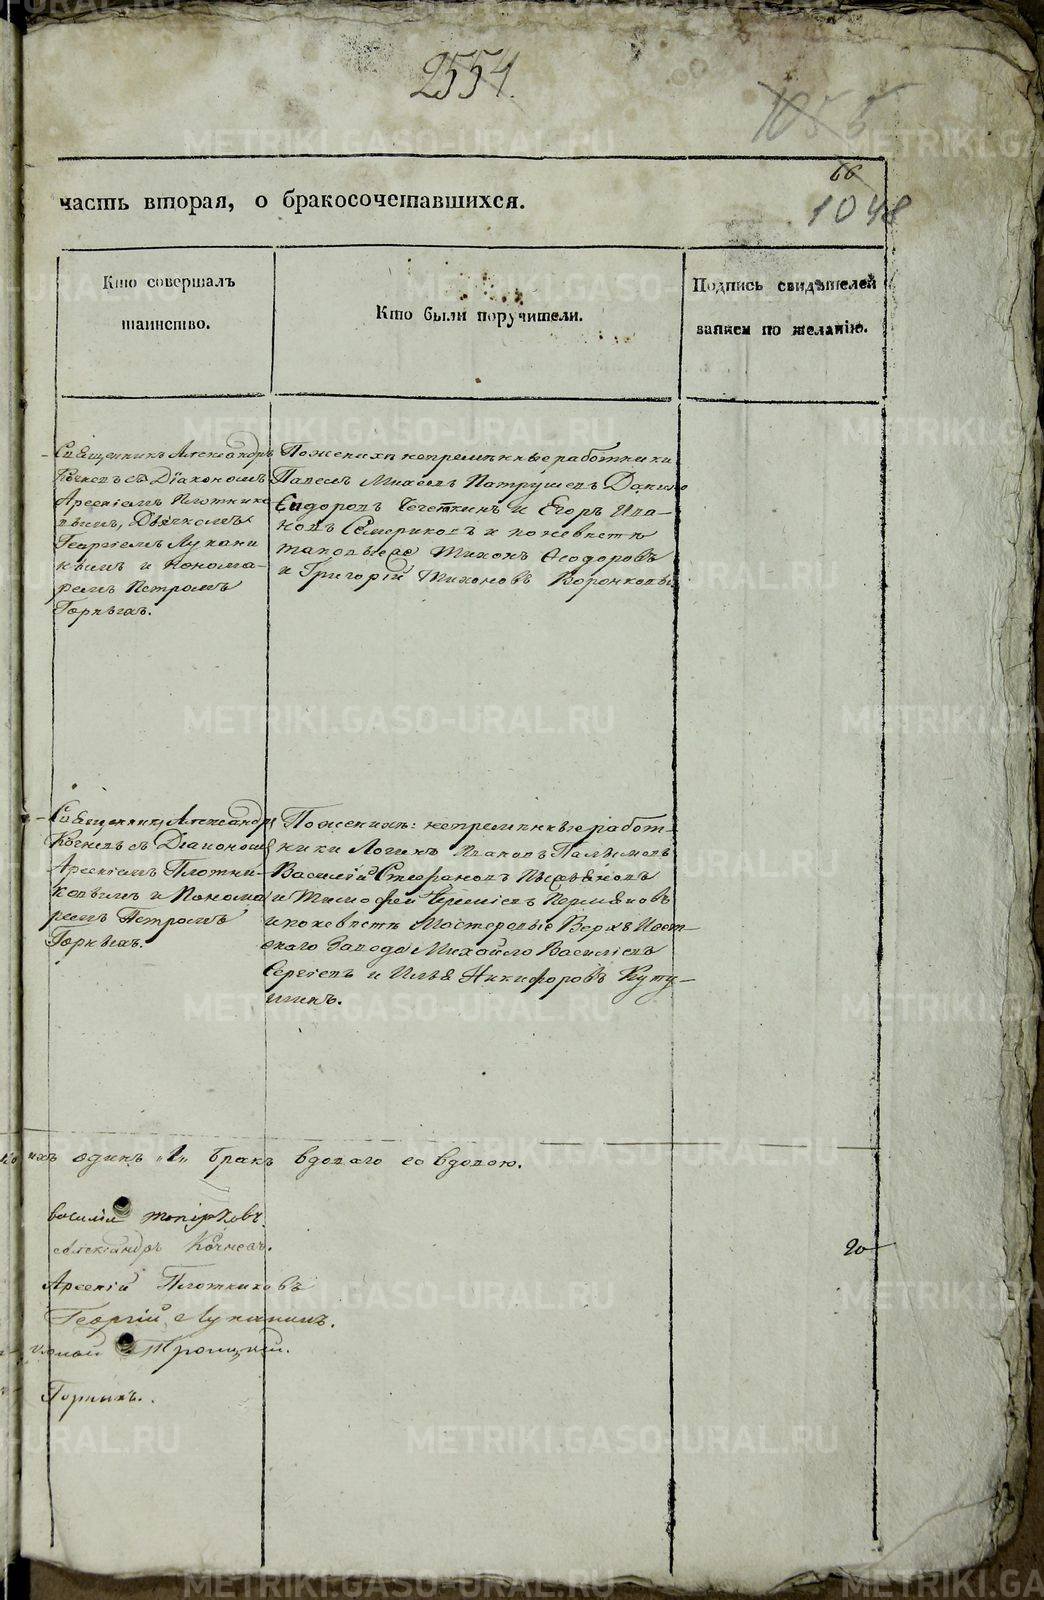 2554.
1055
66
1048
часть вторая, о бракосочетавшихся.
Кто совершалъ
таинство.
Кто были поручители.
Подпись свидѣтелей
записи по желанію.
Священникъ Александръ
Кочневъ съ Діакономъ
Арсеніемъ Плотнико
вымъ, Дьячкомъ
Георгіемъ Лукани
нымъ и Понома-
ремъ Петромъ
Горныхъ.
По женихѣ непремѣнные работники
Павелъ Михеевъ Патрушевъ Данило
Сидоровъ Чечеткинъ и Егоръ Ива-
новъ Семериковъ и по невѣстѣ
таковые же Тихонъ Ѳеодоровъ
и Григорій Тихоновъ Воронковы
Священникъ Александръ
Кочневъ съ Діакономъ
Арсеніемъ Плотни-
ковымъ и Понома
ремъ Петромъ
Горныхъ.
По женихѣ: непремѣнные работ-
ники Логинъ Ивановъ
Василій Стефановъ
и Тимофей Пермяковъ
и по невѣстѣ Мастеровые Верхъ Исет-
скаго Завода Михайло Васильевъ
Сергѣевъ и Илья Никифоровъ Куту-
шинъ.
ихъ одинъ „1„ бракъ вдоваго со вдовою.
Василій Топорковъ.
Александръ Кочневъ.
20
Арсеній Плотниковъ
Георгій Луканинъ.
Троицкій.
Горныхъ.
METRIKI.GASO-URAL.RU